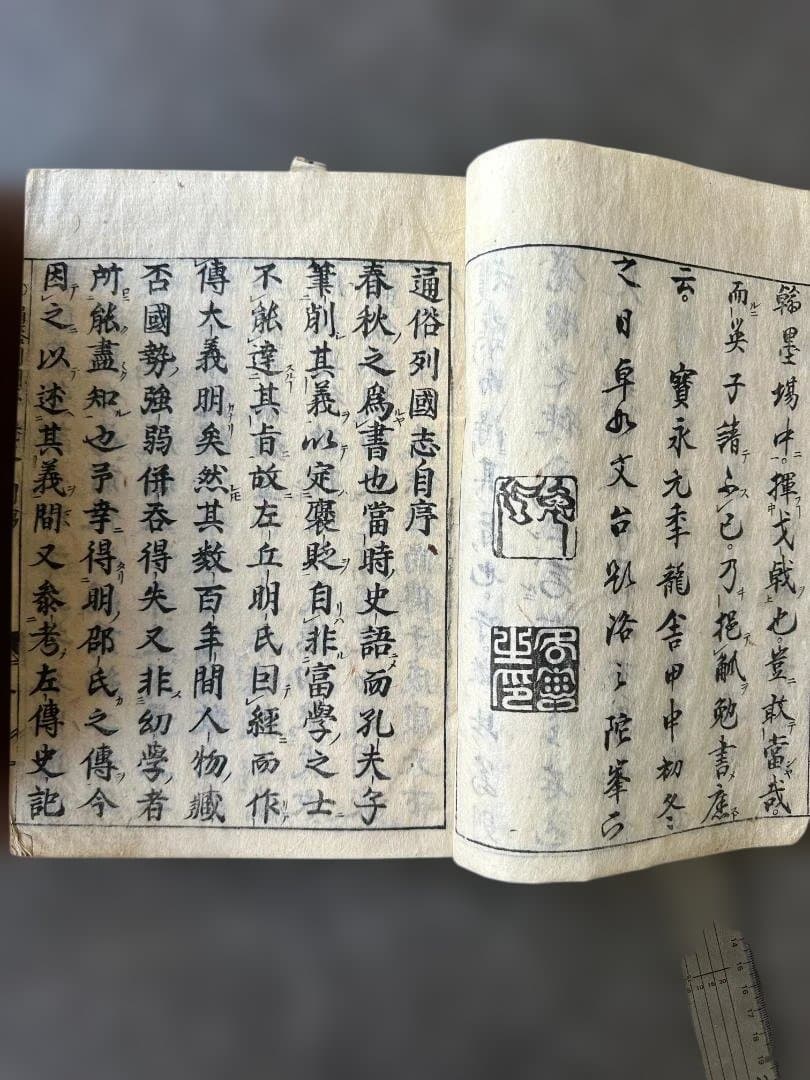 翰墨場中揮戈戟也豈敢當哉
而英子請不已乃挹觚勉書應
云 寶永元年龍舎甲申初冬
之日卓如文台題洛之陀峯下
通俗列國志自序
春秋之爲書也當時史語而孔夫子
筆削其義以定褒貶自非富學之士
不能達其旨故左丘明氏因經而作
傳大義明矣然其數百年間人物臧
否國勢強弱併吞得失又非幼學者
所能盡知也予幸得明邵氏之傳今
因之以述其義間又參考左傳史記